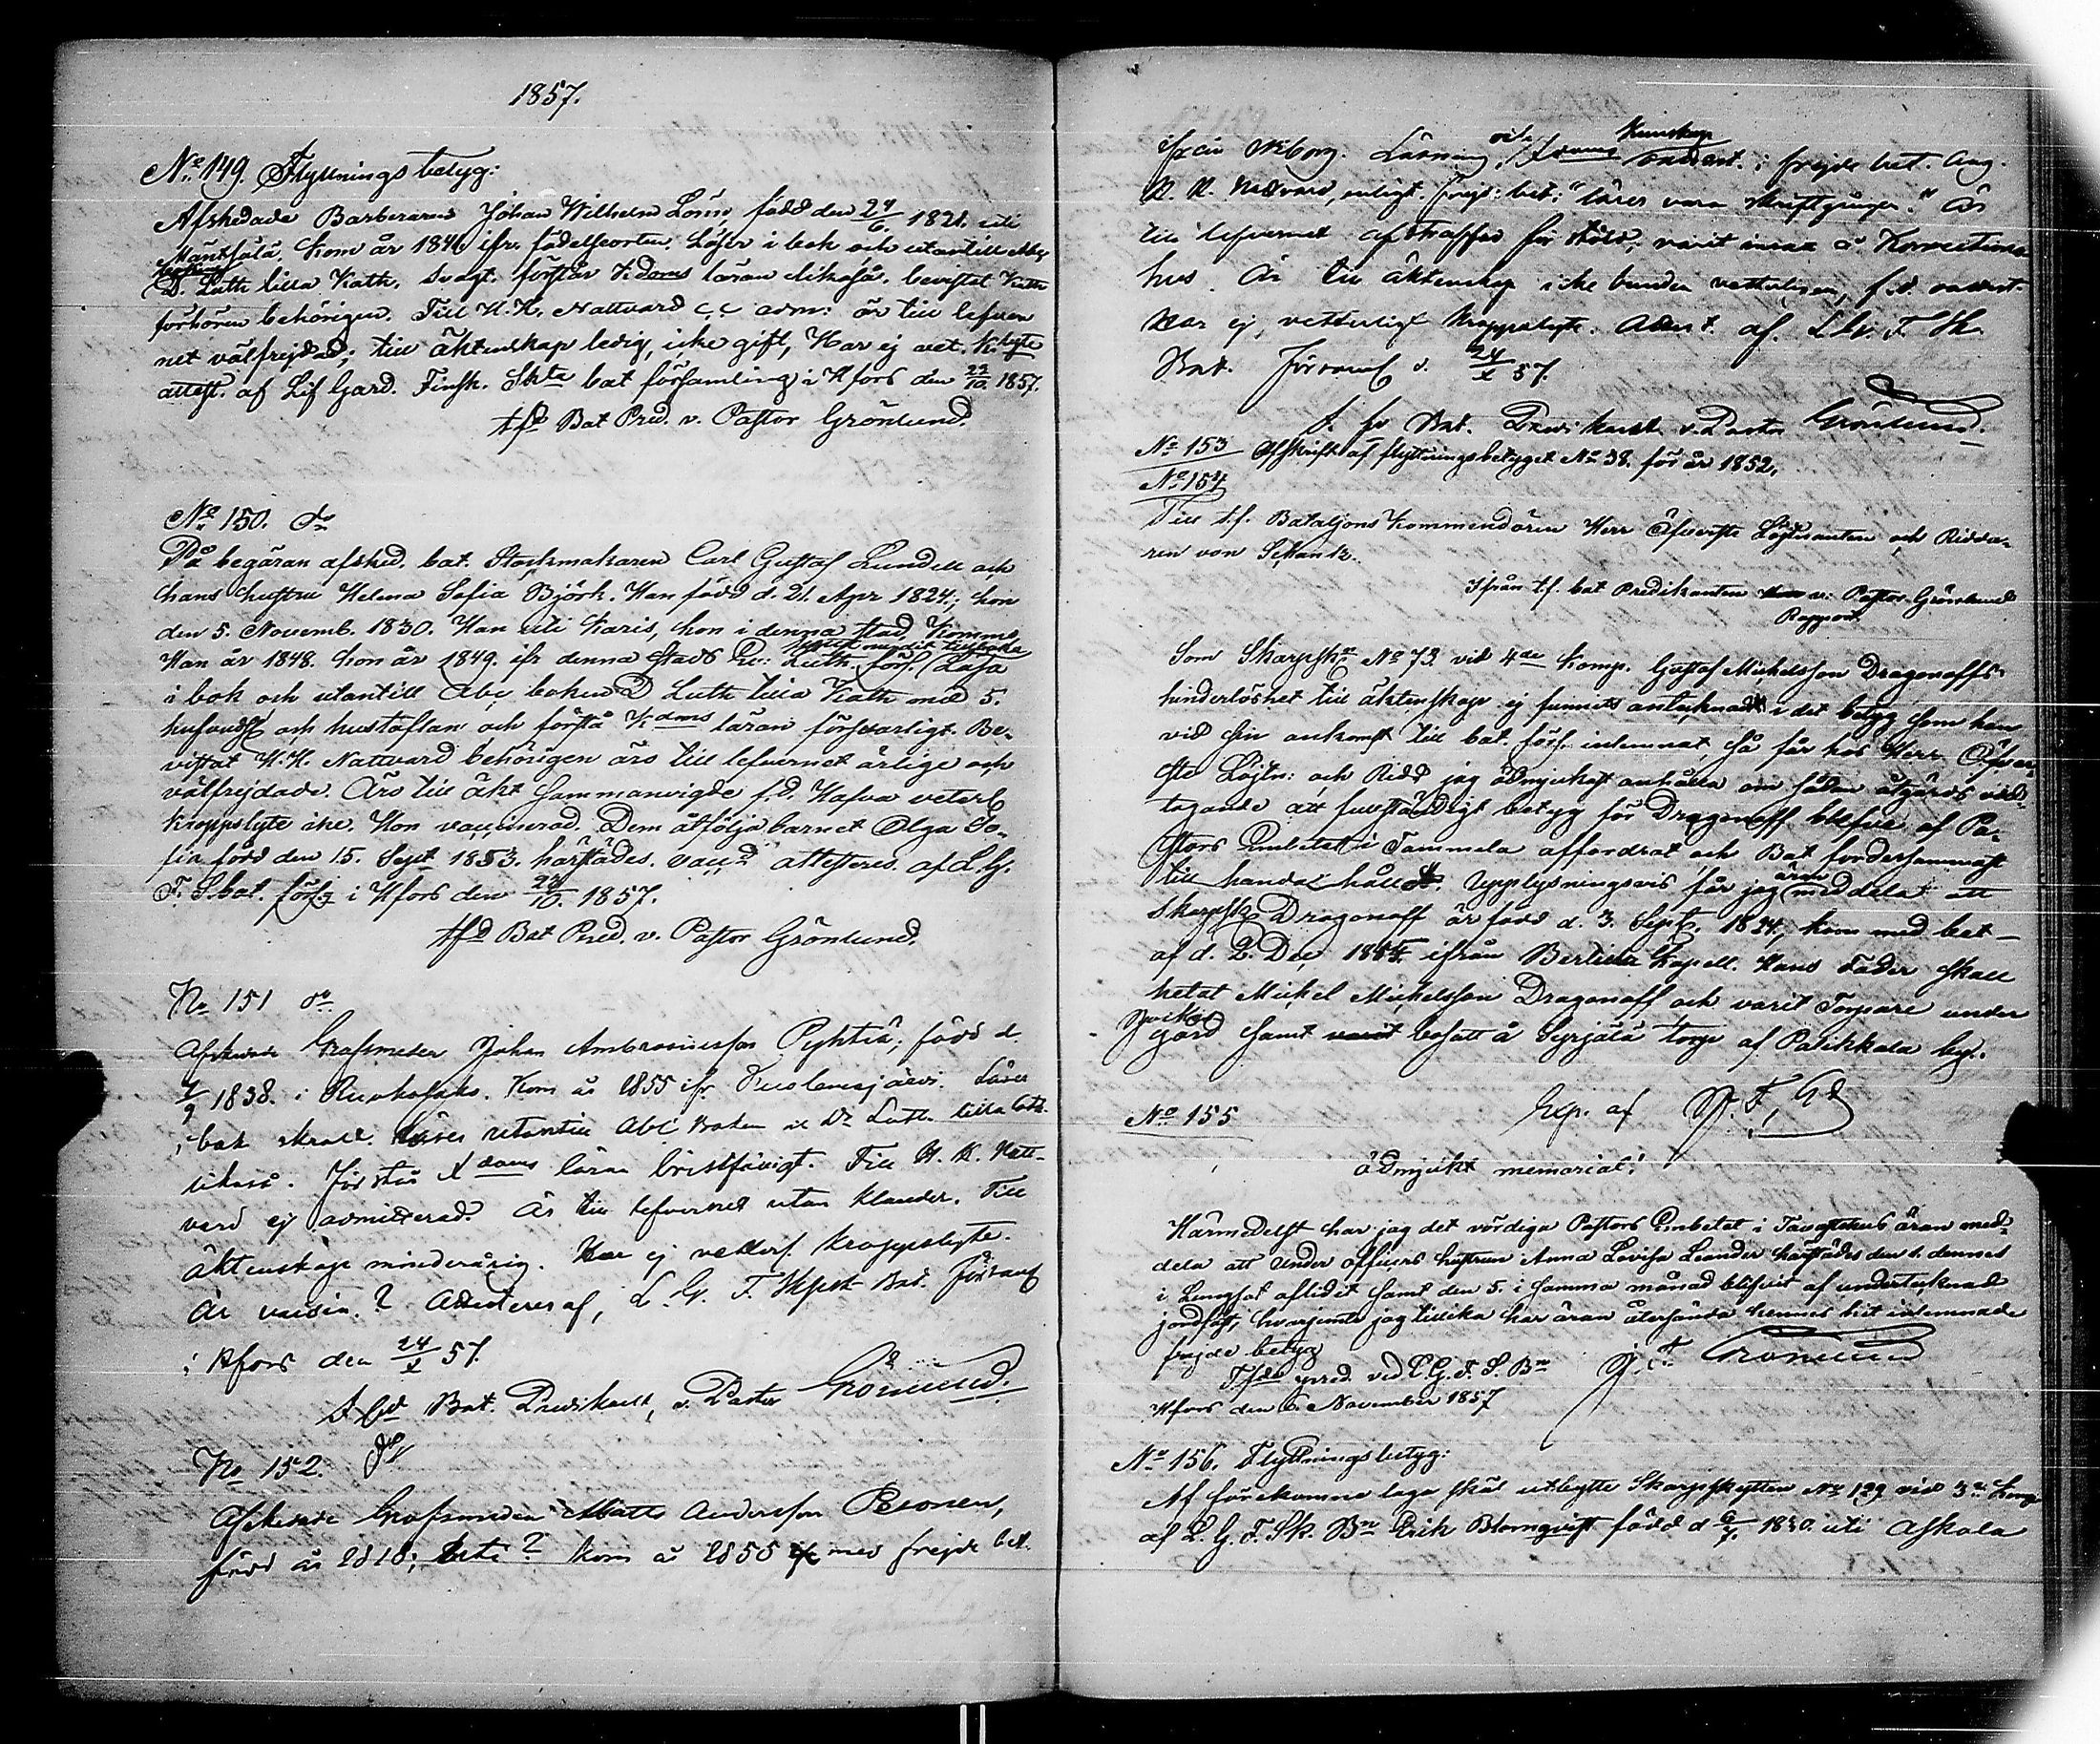 1857.
No 149. Flyttningsbetyg:
Afskedade Barberaren Johan Wilhelm Lönn född den 24/6 1821. uti
Mäntsälä, Kom år 1846 ifr. födelseorten. Läser i bok och utantill Abc
boken D. Luth lilla Kath. svagt. förstår X.doms läran likaså. bevistat Kath
förhören behörigen. Till H.H. Nattvard adm: är till lefver
net välfrejdad; till äktenskap ledig, icke gift, Har ej vet. K. lyte
attest. af Lif Gard. Finsk. Skte bat församling i Hfors den 22/10 1857.
tfd Bat Pred. v. Pastor Grönlund.
No 150. do
På begäran afsked. bat. Stockmakaren Carl Gustaf Lundell och
hans hustru Helena Sofia Björk. Han född d. 21. Apr 1824.; hon
den 5. Novemb. 1830. Han uti Karis, hon i denna stad, Komma
Han år 1848. hon år 1849. ifr denna stads Ev: Luth. förs. Läsa
i bok och utantill Abc boken D Luth lilla Kath med 5.
hufvudst och hustaflan och förstå X.doms läran försvarligt. Be-
vistat H.H. Nattvard behörigen äro till lefvernet ärlige och
välfrejdade. Äro till äkt sammanvigde f.d. Hafva veterl
kroppslyte icke. Hon vaccinerad. Dem åtfölja barnet Olga So-
fia född den 15. Sept 1853. härstädes. vacc:d attesteras af L.G.
F. S. bat. förs:g i Hfors den 24/10. 1857.
tfd Bat Pred. v. Pastor Grönlund.
No 151 do
Afskedade Grofsmeden Johan Ambrosiusson Pyhtiä; född d.
1/9 1838. i Ruokolaks. Kom år 1855 ifr. Läser
i bok skrall. läser utantill Abc boken o Dr Luth. lilla Cat.
likaså. Förstår X doms läran bristfälligt. Till H. H. Natt-
vard ej admitterad. Är till lefvernet utan klander. Till
äktenskap minderårig. Har ej vetterl. kroppslyte.
Är vaccin.? Attesteras af, L. G. F. Skpsk Bat. Församl
i Hfors den 24/X 57.
t. fd Bat. Predikant, v. Pastor Grönlund.
No 152. do
Afskedade Grofsmeden Matts Andersson Peronen,
född år 1818; uti? kom år 1855 med frejde bet.
ifrån Wiborg. Läsning, Xdoms kunskap onämnt. i frejde bet. Ang.
H. H. Nattvard, enligt frejd: bet: "lärer vara skriftgången." Är
till lefvernet afstraffad för stöld, varit insatt å Korrections
hus. Är till äktenskap icke bunden vetterligen, f.d.
Har ej, vetterligt kroppslyte. Attest. af L.G. F. Sk
Bat. Församl d. 24/X 57.
t. fd Bat. Predikant v. Pastor Grönlund.
No 153 Afskrift af flyttningsbetyget No 38. för år 1852.
No 154
Till t.f. Bataljons Kommendören Herr Öfverste Löjtnanten och Ridda-
ren von Schantz.
Ifrån tf. bat Predikanten v. Pastor Grönlund
Rapport.
Som Skarpsk:n No 73 vid 4de Komp. Gustaf Mickelsson Dragonoffs
hinderlöshet till äktenskap ej funnits antecknadt i det betyg som han
vid sin ankomst till bat. förs. inlemnat, så får hos Herr Öfver-
ste Löjtn: och Ridd jag ödmjukast anhålla om sådan åtgärds vid-
tagande att fullständigt betyg för Dragonoff blefve af Pa-
stors Embetet i Tammela affordrat och Bat fordersammast
till handa hållet. Upplysningsvis får jag äran meddela att
Skarpsk: Dragonoff är född d. 3. Sept. 1824, kom med bet
af d. 2. Dec 1844. ifrån Perttula Kapell. Hans Fader skall
hetat Mickel Mickelsson Dragonoff och varit Torpare under
gård samt bosatt å Syrjälä torp af Palikkala by.
Exp. af J. F. Gd
No 155
ödmjukt memorial!
Härmedelst har jag det vördiga Pastors Embetet i Tavastehus äran med-
dela att Under officers hustrun Anna Lovisa Leander härstädes den 1. dennes
i Lungsot aflidit samt den 5. i samma månad blifvit af undertecknad
jordfäst, hvarjemte jag tillika har äran återsända hennes hit inlemnade
frejde betyg
Tfde pred. vid L. G. F. S. Bn J. F. Grönlund
Hfors den 6. November 1857
No 156. Flyttningsbetyg:
Af förekomne laga skäl utbytte Skarpskytten No 129 vid 3e Komp
af L. G. F. Sk. Bn Erik Blomqvist född d 1830. uti Askola